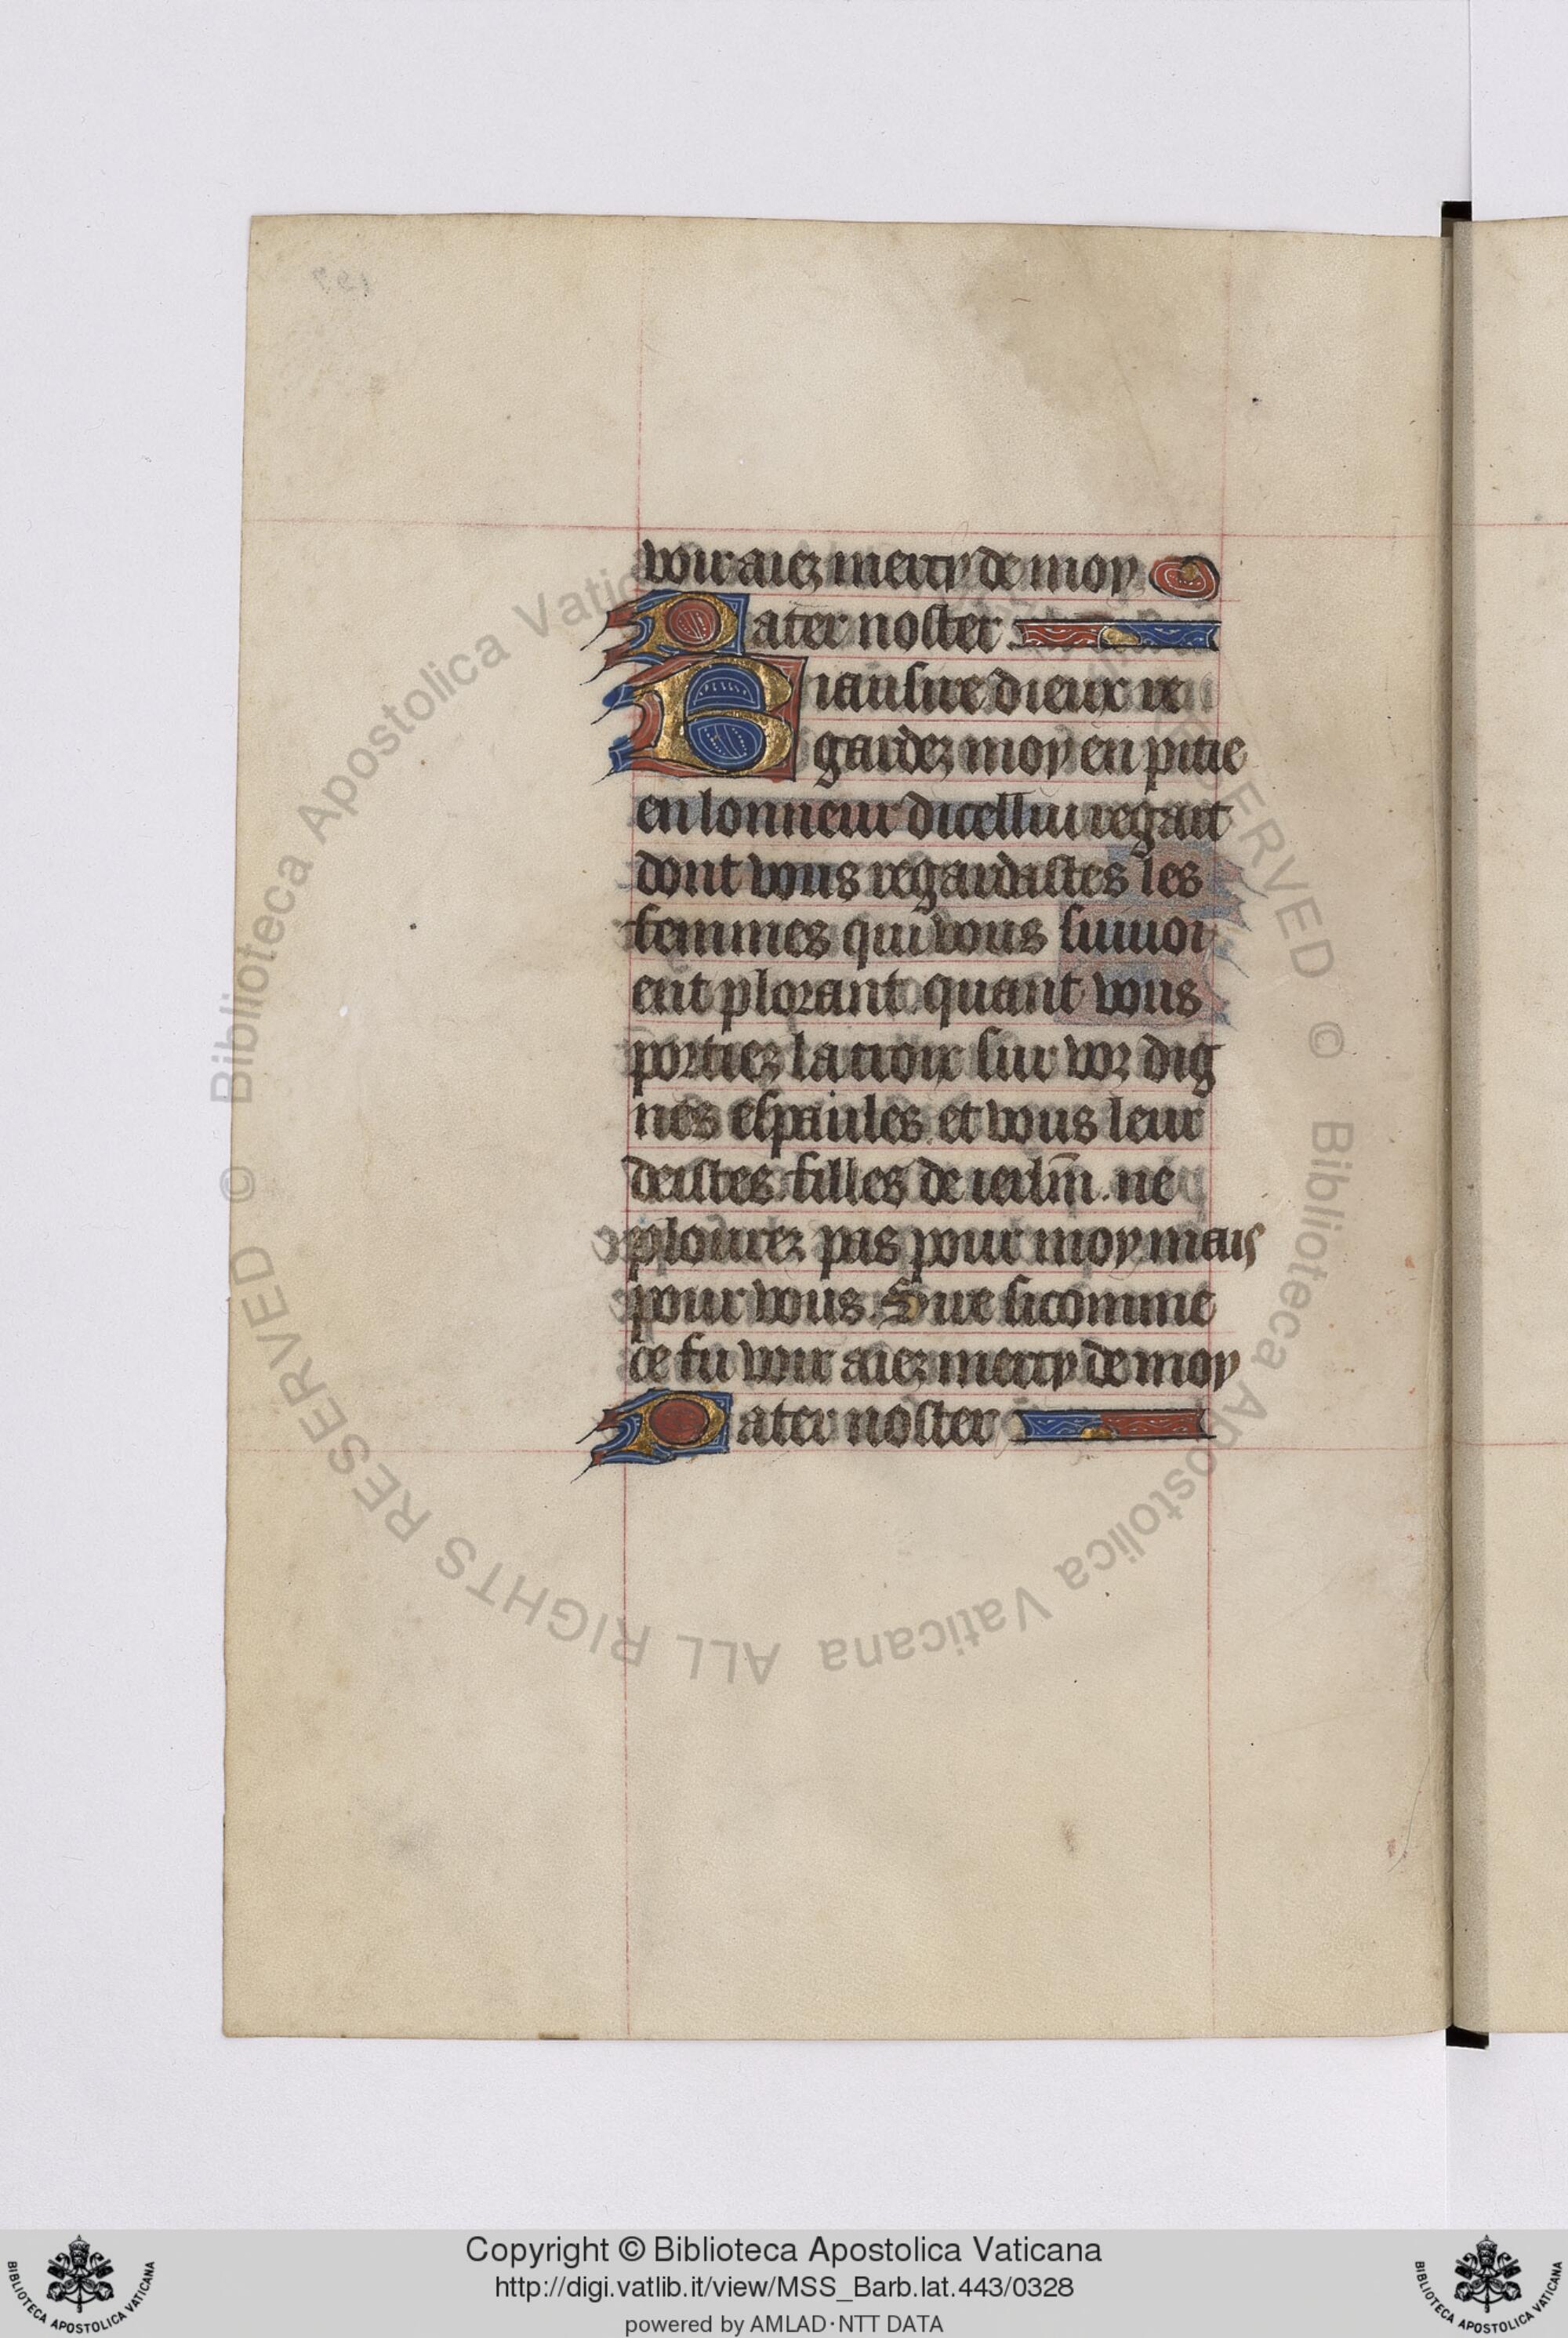 voir aiez mercy de moy
Pater noster
Biau sire dieux re
gardez moy en pitie
en lonneur dicellui regart
dont vous regardastes les
femmes qui vous suiuoi
ent plorant. quant vous
portiez la croix sur voz dig
nes espaules. et vous leur
deistes. filles de ierlm̄. ne
plourez pas pour moy mais
pour vous. Sire sicomme
ce fu voir aiez mercy de moy
Pater noster
© Biblioteca Apostolica Vaticana ALL RIGHTS RESERVED
© Biblioteca Apostolica Vaticana ALL RIGHTS RESERVED
Copyright © Biblioteca Apostolica Vaticana
http://digi.vatlib.it/view/MSS_Barb.lat.443/0328
powered by AMLAD·NTT DATA
BIBLIOTECA APOSTOLICA VATICANA
BIBLIOTECA APOSTOLICA VATICANA